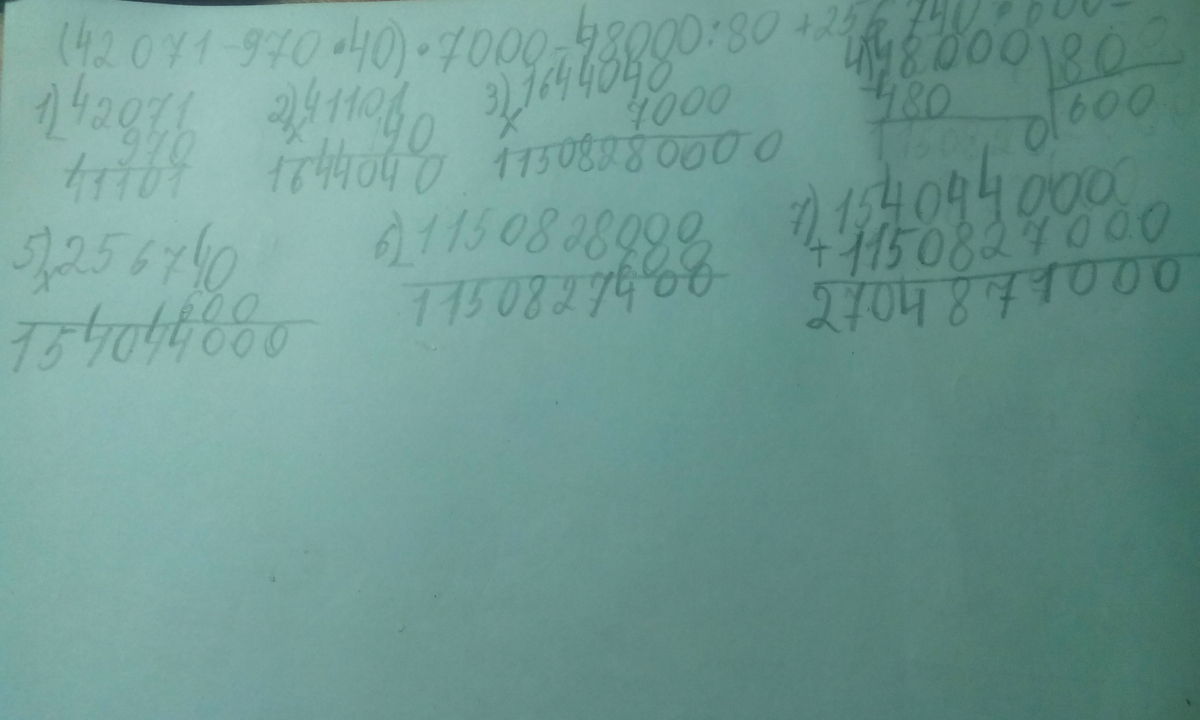 (42071-970·40)·7000-48000:80+256740·600=
1) 42071
- 970
41101
2) 41101
× 40
1644040
3) 1644040
× 7000
11508280000
4) 48000 | 80
-480 600
0
5) 256740
× 600
154044000
6) 1150828000
- 600
1150827400
7) 154044000
+ 1150827000
2704871000